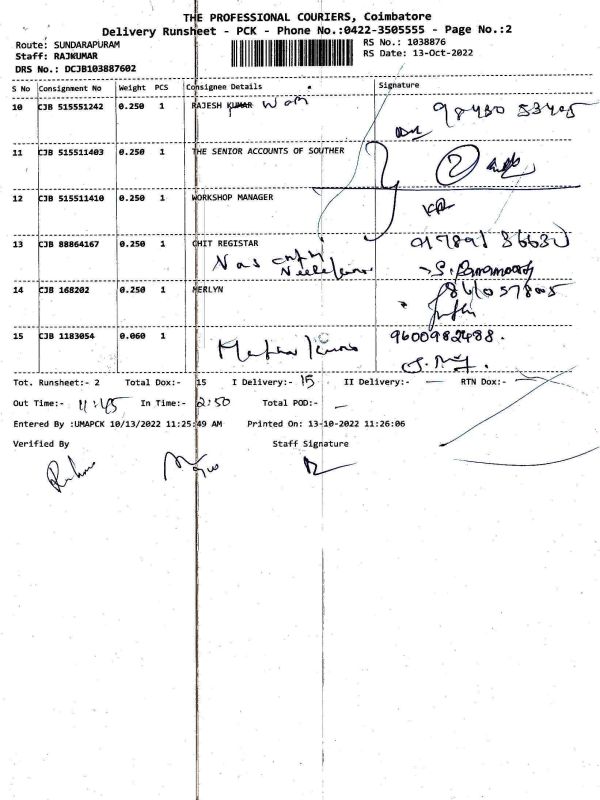 THE PROFESSIONAL COURIERS, Coimbatore
Delivery Runsheet - PCK - Phone No.:0422-3505555 - Page No.:2
Route: SUNDARAPURAM
RS No.: 1038876
Staff: RAJKUMAR
RS Date: 13-Oct-2022
DRS No.: DCJB103887602
S No Consignment No Weight PCS Consignee Details Signature
10 CJB 515551242 0.250 1 RAJESH KUMAR
11 CJB 515511403 0.250 1 THE SENIOR ACCOUNTS OF SOUTHER 2
12 CJB 515511410 0.250 1 WORKSHOP MANAGER
13 CJB 88864167 0.250 1 CHIT REGISTAR
14 CJB 168202 0.250 1 MERLYN
15 CJB 1183054 0.060 1 9600982488.
Tot. Runsheet:- 2 Total Dox:- 15 I Delivery:- 15 II Delivery:- — RTN Dox:- —
Out Time:- 11:45 In Time:- 2:50 Total POD:- —
Entered By :UMAPCK 10/13/2022 11:25:49 AM Printed On: 13-10-2022 11:26:06
Verified By Staff Signature